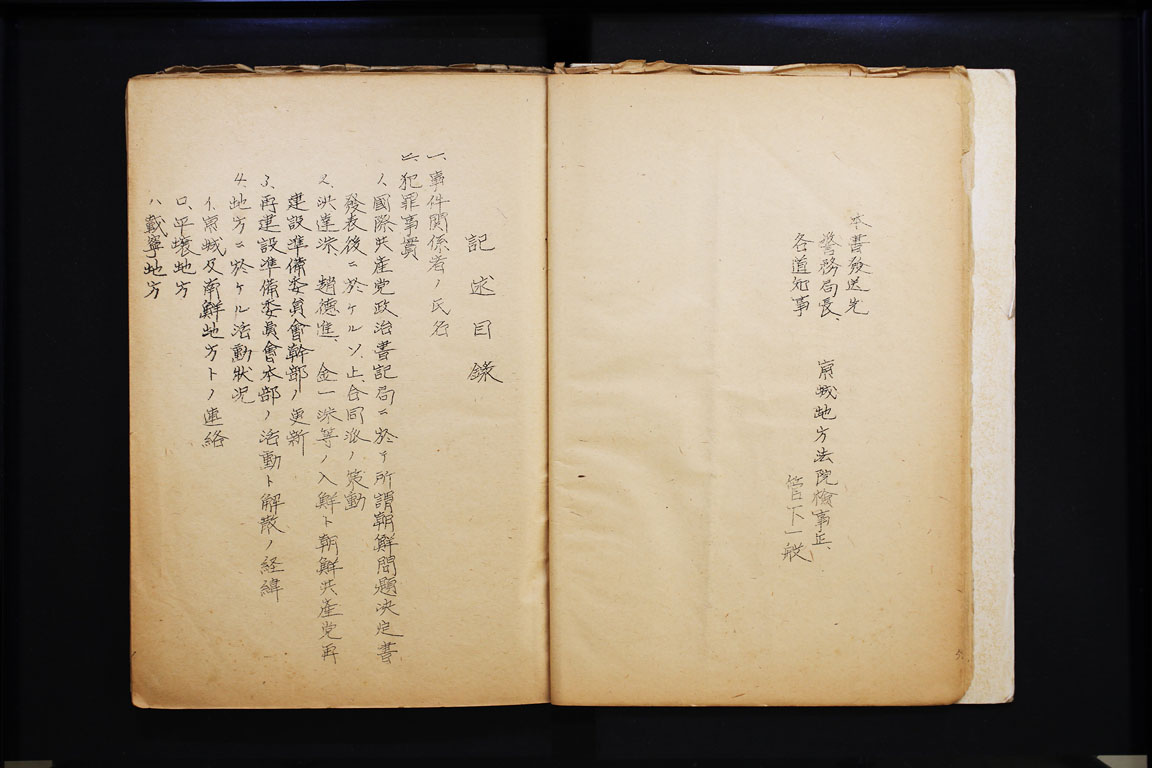 本書發送先
警務局長、 京城地方法院檢事正、
各道知事 管下一般
記述目錄
一、事件関係者ノ氏名
二、犯罪事實
1、國際共産党政治書記局ニ於テ所謂朝鮮問題決定書
發表後ニ於ケルソ、上、合同派ノ策動
2、洪達洙、趙德進、金一洙等ノ入鮮ト朝鮮共産党再
建設準備委員會幹部ノ更新
3、再建設準備委員會本部ノ活動ト解散ノ経緯
4、地方ニ於ケル活動狀況
イ、京城及南鮮地方トノ連絡
ロ、平壤地方
ハ、載寧地方